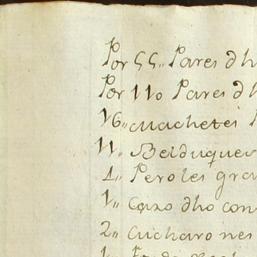 Por 55,, Pares dh
Por 110 Pares dh
16,, Machetes
11,, Belduques
1,, Peroles gra
1,, Cazo dho con
2,, Cucharones